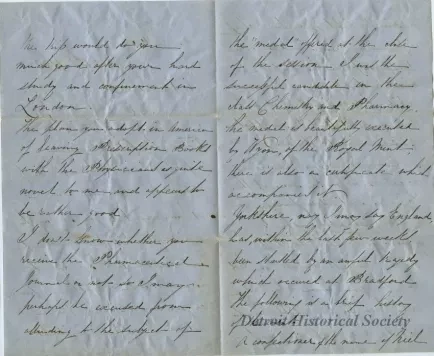 the trip would do you
much good after your hard
study and confinement in
London.
The plan you adopt in America
of leaving Prescription Books
with the Physicians is quite
novel to me and appears to
be rather good.
I don't know whether you
receive the Pharmaceutical
Journal or not so I may
perhaps be excused from
alluding to the subject of
the "medal" offered at the close
of the session. I was the
successful candidate in the
class Chemistry and Pharmacy.
the medal is beautifully executed
by Wyon, of the Royal Mint.
there is also a certificate which
accompanies it
Yorkshire, nay I may say England
has, within the last few weeks
been startled by an awful tragedy
which occurred at Bradford
The following is a brief history
of the
A confectioner of the name of
Detroit Historical Society